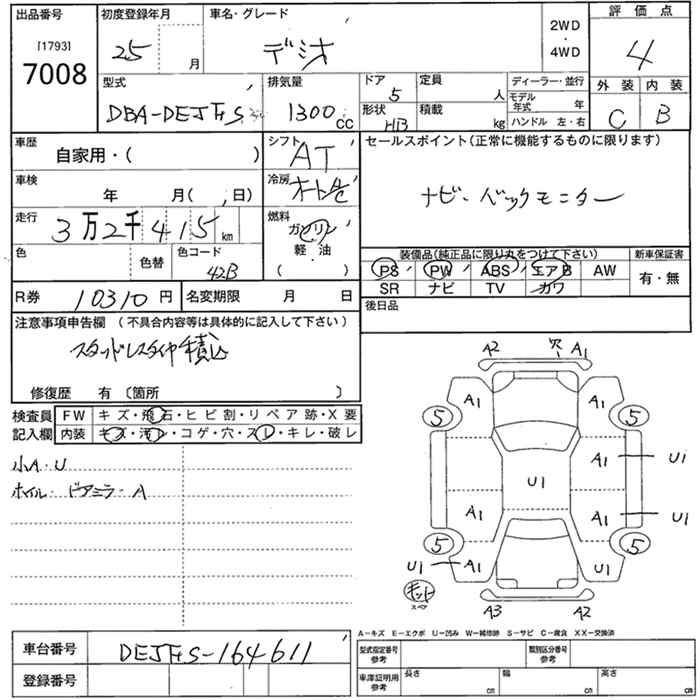 出品番号 初度登録年月 車名・グレード 2WD 評価点
[1793] 25 月 デミオ ・ 4
7008 4WD
型式 排気量 ドア 定員 ディーラー・並行 外装 内装
DBA-DEJFS 1300 CC 5 人 モデル年式 年 C B
形状 積載 ハンドル 左・右
HB kg
車歴 シフト セールスポイント(正常に機能するものに限ります)
自家用・( ) AT
車検 冷房 ナビ・バックモニター
年 月( 日) オートAC
走行 燃料
3万2千415 km ガソリン
色 色替 色コード 軽・油 装備品(純正品に限り丸をつけて下さい) 新車保証書
42B ( ) PS PW ABS エアB AW 有・無
R券 10310円 名変期限 月 日 SR ナビ TV カワ
後日品
注意事項申告欄 (不具合内容等は具体的に記入して下さい)
スタッドレスタイヤ積込
修復歴 有 〔箇所 〕
検査員 FW キズ・飛石・ヒビ割・リペア跡・X要
記入欄 内装 キズ・汚レ・コゲ・穴・スレ・キレ・破レ
小A・U
ホイル・ドアミラーA
A2 穴 A1
A1 A1
5 5
A1 U1
U1
A1 A1 U1
5 5
U1 A1 U1
キット
スペア
A3 A2
A−キズ E−エクボ U−凹み W−補修跡 S−サビ C−腐食 XX−交換済
車台番号 DEJFS-164611 型式指定番号 参考 類別区分番号 参考
登録番号 車庫証明用 参考 長さ cm 幅 cm 高さ cm